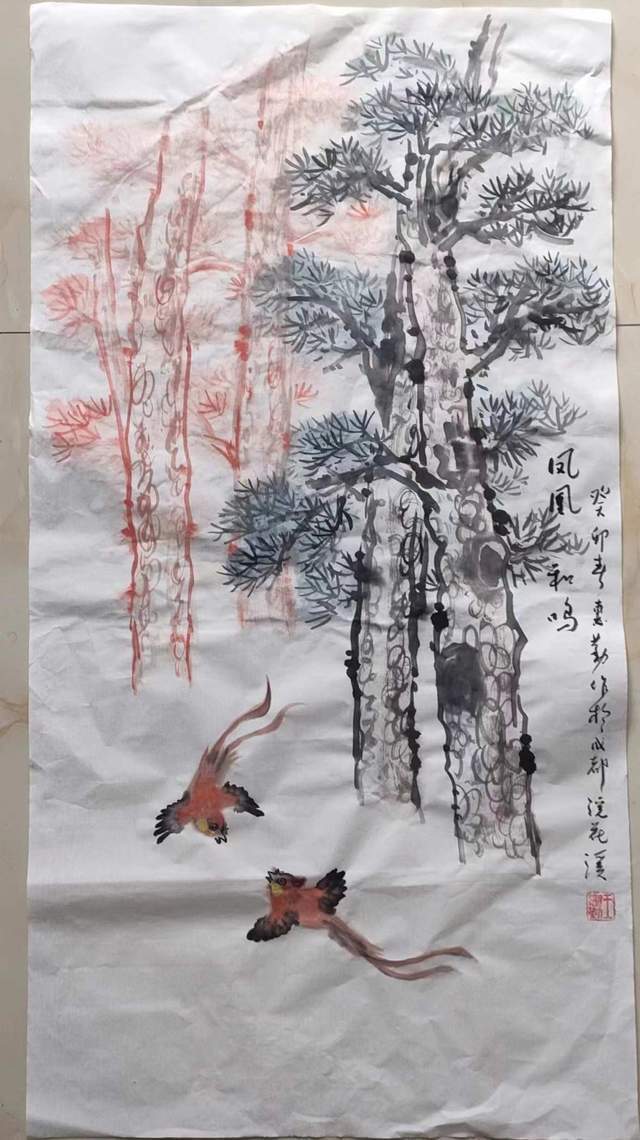 凤凰和鸣
癸卯春惠勤作于成都浣花溪